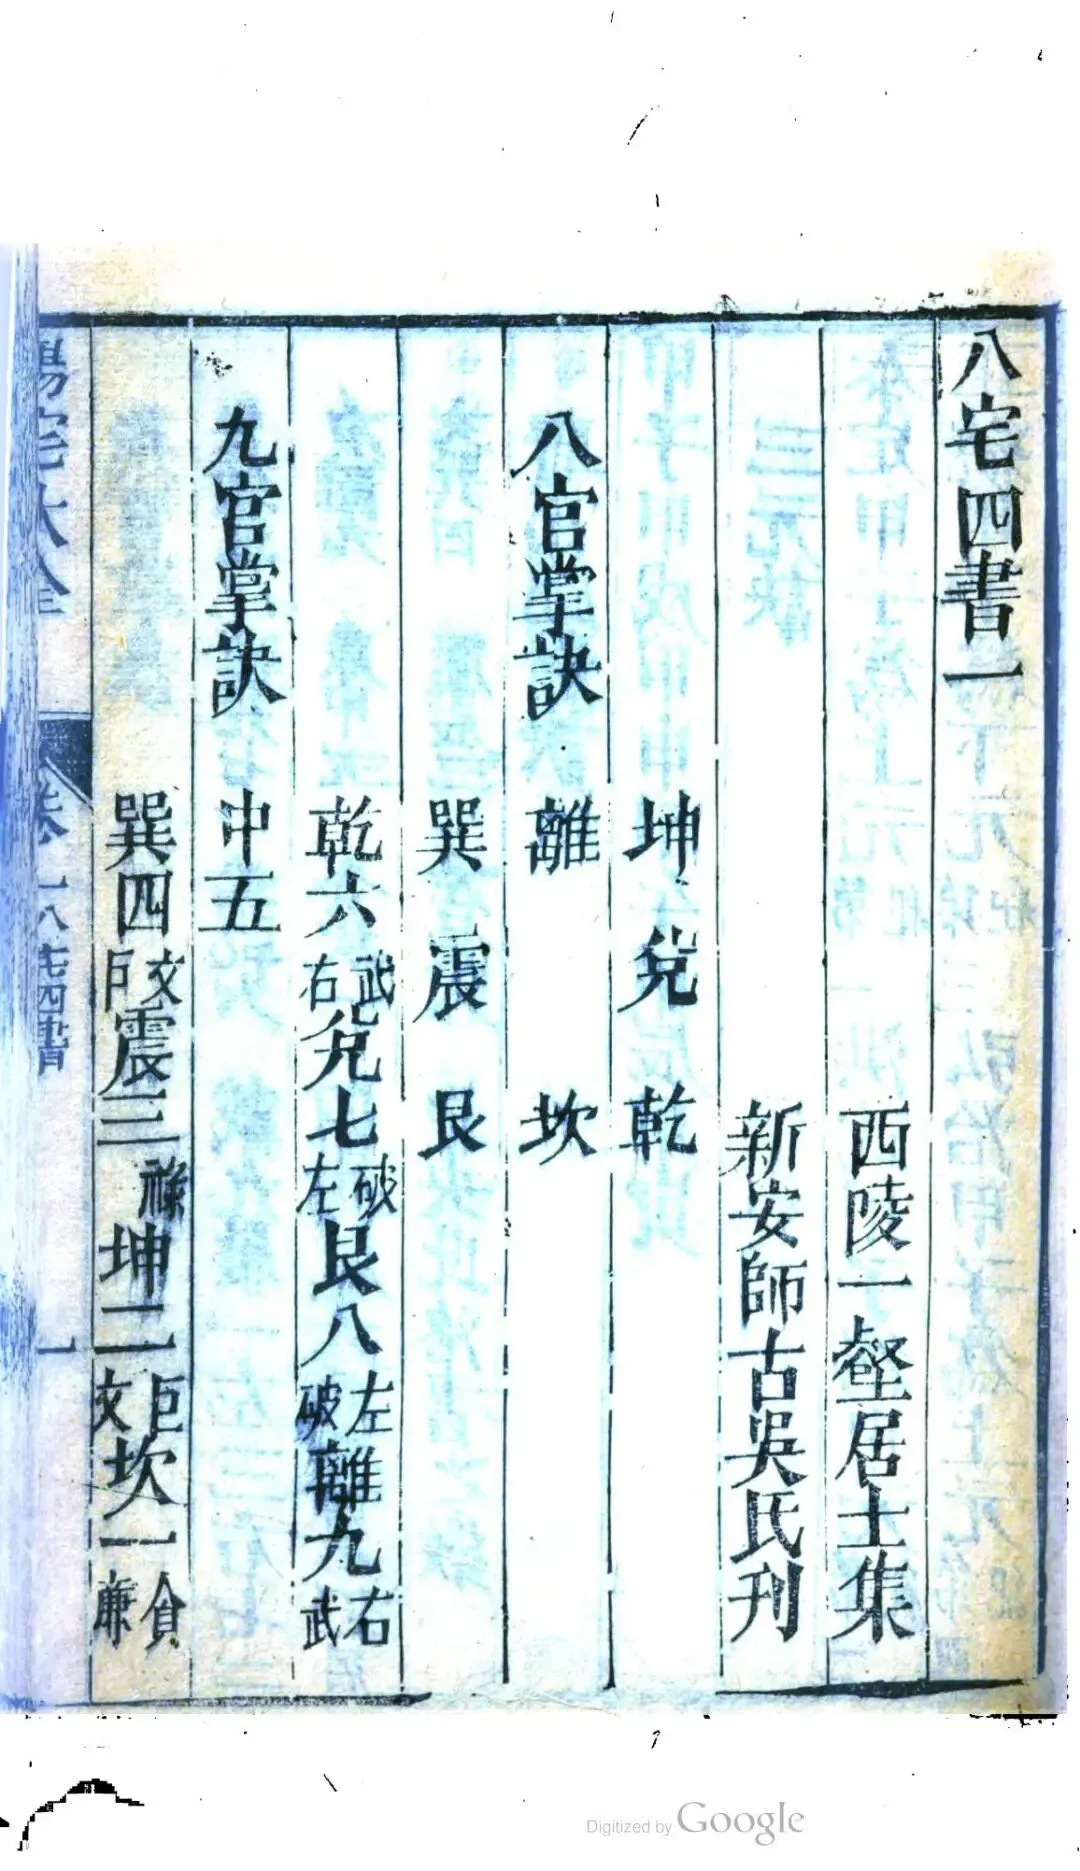 八宅四書一
西陵一壑居士集
新安師古吳氏刋
坤 兌 乾
八宮掌訣 離 坎
巽 震 艮
乾六武右兌七破左艮八左破離九右武
九宮掌訣 中五
巽四文卩震三祿坤二巨文坎一貪廉
陽宅大全 卷一 八宅四書 一
Digitized by Google